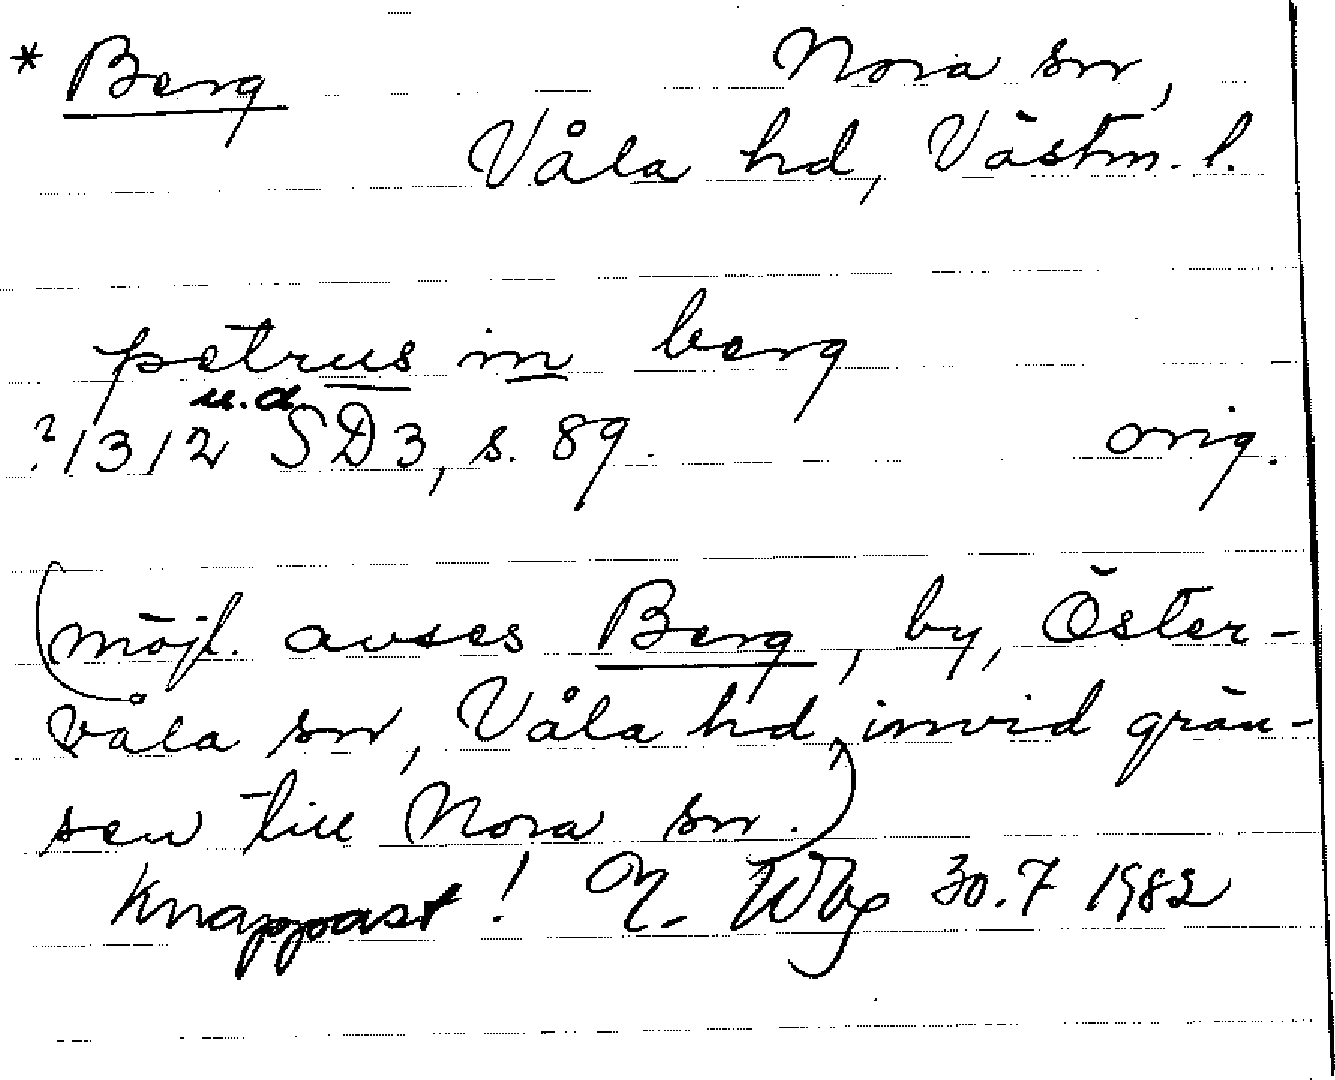 * Berg Nora sn,
Våla hd, Västm. l.
petrus in berg
u.d.
?1312 SD3, s. 89. orig.
(möjl. avses Berg, by, Öster-
våla sn, Våla hd, invid grän-
sen till Nora sn.)
Knappast! 30.7 1982